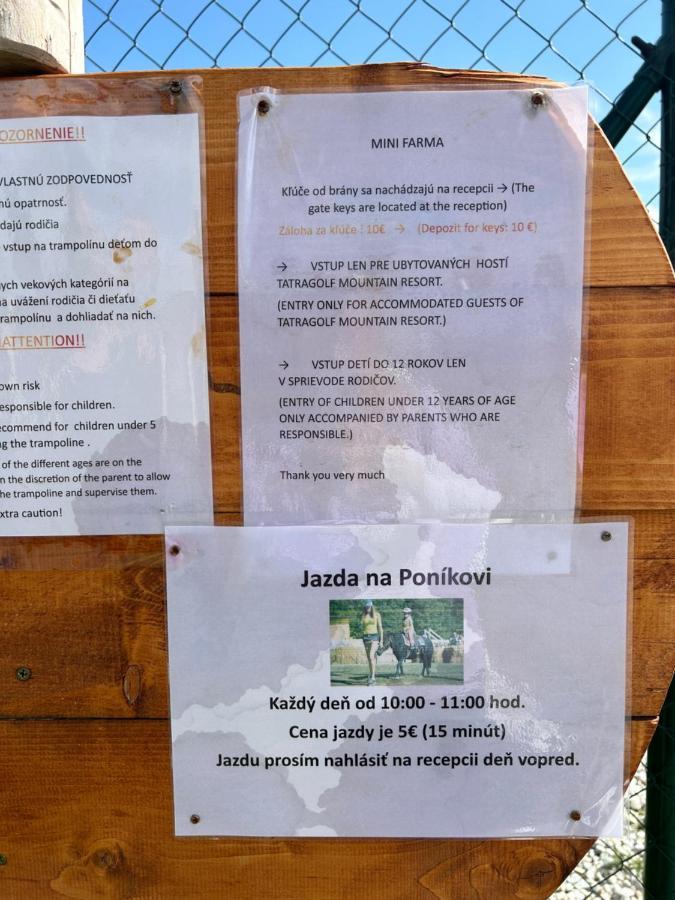 OZORNENIE!!
VLASTNÚ ZODPOVEDNOSŤ
nú opatrnosť.
dajú rodičia
vstup na trampolínu deťom do
ych vekových kategórií na
na uvážení rodičia či dieťaťu
rampolínu a dohliadať na nich.
ATTENTION!!
own risk
esponsible for children.
ecommend for children under 5
ng the trampoline .
of the different ages are on the
n the discretion of the parent to allow
he trampoline and supervise them.
xtra caution!
MINI FARMA
Kľúče od brány sa nachádzajú na recepcii → (The
gate keys are located at the reception)
Záloha za kľúče : 10€ → (Depozit for keys: 10 €)
→ VSTUP LEN PRE UBYTOVANÝCH HOSTÍ
TATRAGOLF MOUNTAIN RESORT.
(ENTRY ONLY FOR ACCOMMODATED GUESTS OF
TATRAGOLF MOUNTAIN RESORT.)
→ VSTUP DETÍ DO 12 ROKOV LEN
V SPRIEVODE RODIČOV.
(ENTRY OF CHILDREN UNDER 12 YEARS OF AGE
ONLY ACCOMPANIED BY PARENTS WHO ARE
RESPONSIBLE.)
Thank you very much
Jazda na Poníkovi
Každý deň od 10:00 - 11:00 hod.
Cena jazdy je 5€ (15 minút)
Jazdu prosím nahlásiť na recepcii deň vopred.